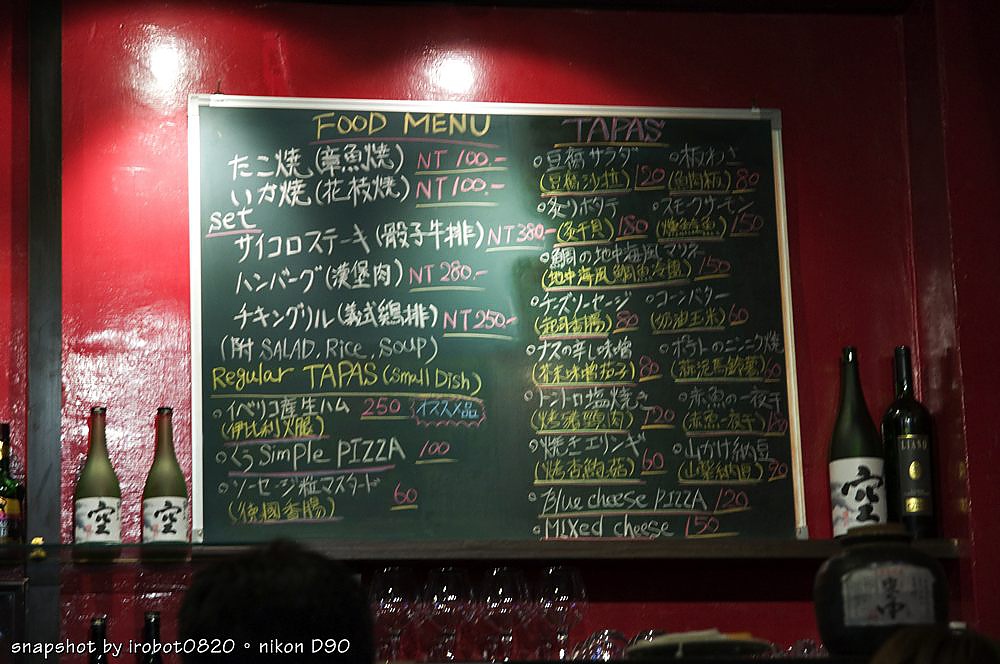 FOOD MENU
たこ焼 (章魚焼) NT 100.-
いか焼 (花枝焼) NT 100.-
set
サイコロステーキ (骰子牛排) NT 380-
ハンバーグ (漢堡肉) NT 280.-
チキングリル (義式鶏排) NT 250-
(附 SALAD, Rice, Soup)
Regular TAPAS (Small Dish)
イベリコ産生ハム 250 オススメ品
(伊比利火腿)
Simple PIZZA 100
ソーセージ粒マスタード 60
(德國香腸)
TAPAS
豆腐サラダ
(豆腐沙拉) 120
板わさ
(魚肉板) 80
炙りホタテ
(炙干貝) 180
スモークサーモン
(燻鮭魚) 150
鯛の地中海風マリネ
(地中海風鯛魚冷盤) 150
チーズソーセージ
(起司香腸) 80
コーンバター
(奶油玉米) 60
ナスの辛し味噌
(芥末味噌茄子) 80
ポテトのニンニク焼
(蒜泥馬鈴薯)
トントロ塩焼き
(烤豬頸肉) 120
赤魚の一夜干
(赤魚一夜干)
焼きエリンギ
(烤杏鮑菇) 60
山かけ納豆
(山藥納豆)
Blue cheese PIZZA 120
MIXed cheese 150
空
空
空
snapshot by irobot0820 。 nikon D90